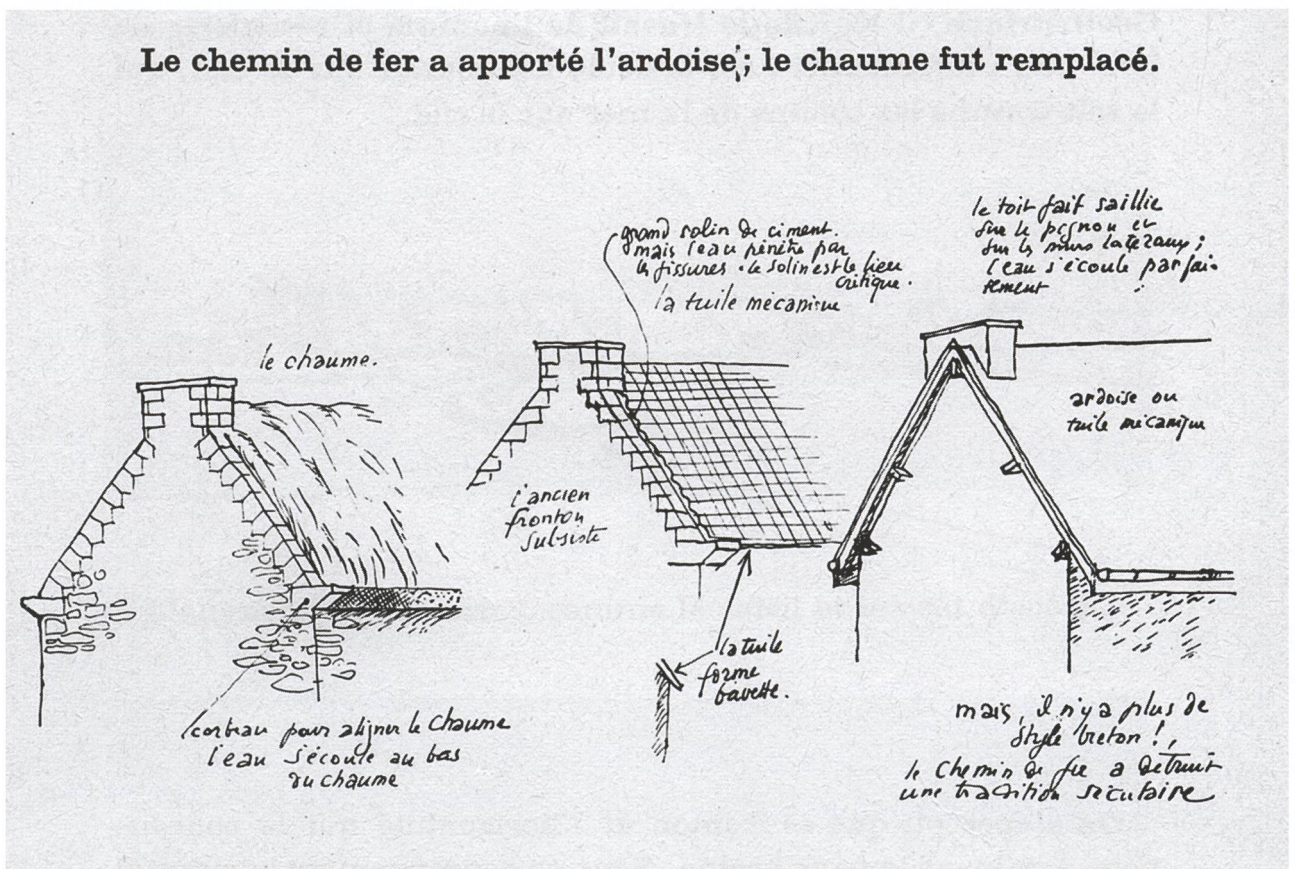 Le chemin de fer a apporté l'ardoise; le chaume fut remplacé.
le chaume.
corbeau pour aligner le chaume
l'eau s'écoule au bas
du chaume
grand solin de ciment.
mais l'eau pénètre par
les fissures. le solin est le lieu
critique.
la tuile mécanique
l'ancien
fronton
subsiste
la tuile
forme
bavette.
le toit fait saillie
sur le pignon et
sur les murs latéraux;
l'eau s'écoule parfai-
tement
ardoise ou
tuile mécanique
mais, il n'y a plus de
style breton!,
le chemin de fer a détruit
une tradition séculaire